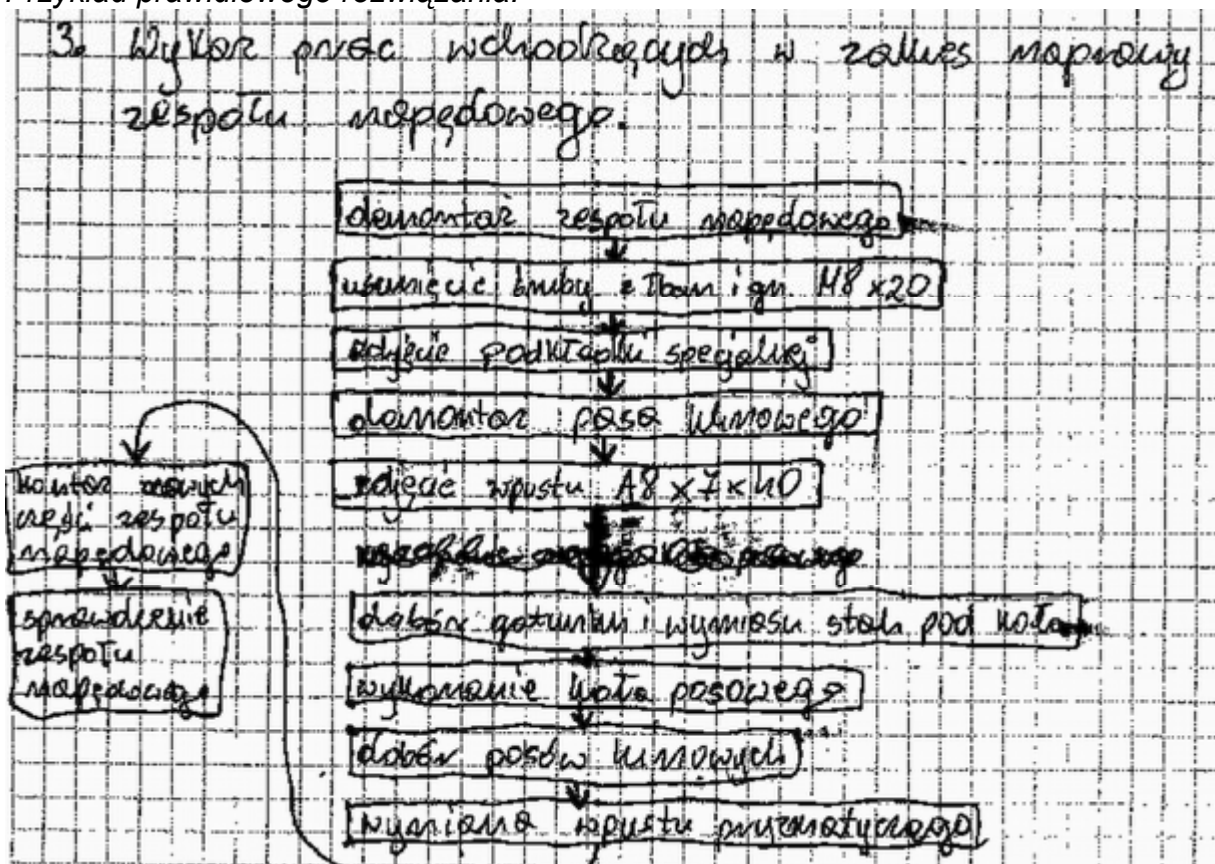 Przykład prawidłowego rozwiązania:
3. Wykaz prac wchodzących w zakres naprawy
zespołu napędowego.
demontaż zespołu napędowego
usunięcie śruby z łbem i gn. M8 x20
zdjęcie podkładki specjalnej
demontaż pasa klinowego
zdjęcie wpustu A8 x 7 x 40
dobór gatunku i wymiaru stali pod koło
wykonanie koła pasowego
dobór pasów klinowych
wymiana wpustu pryzmatycznego
nowych
części zespołu
napędowego
sprawdzenie
zespołu
napędowego